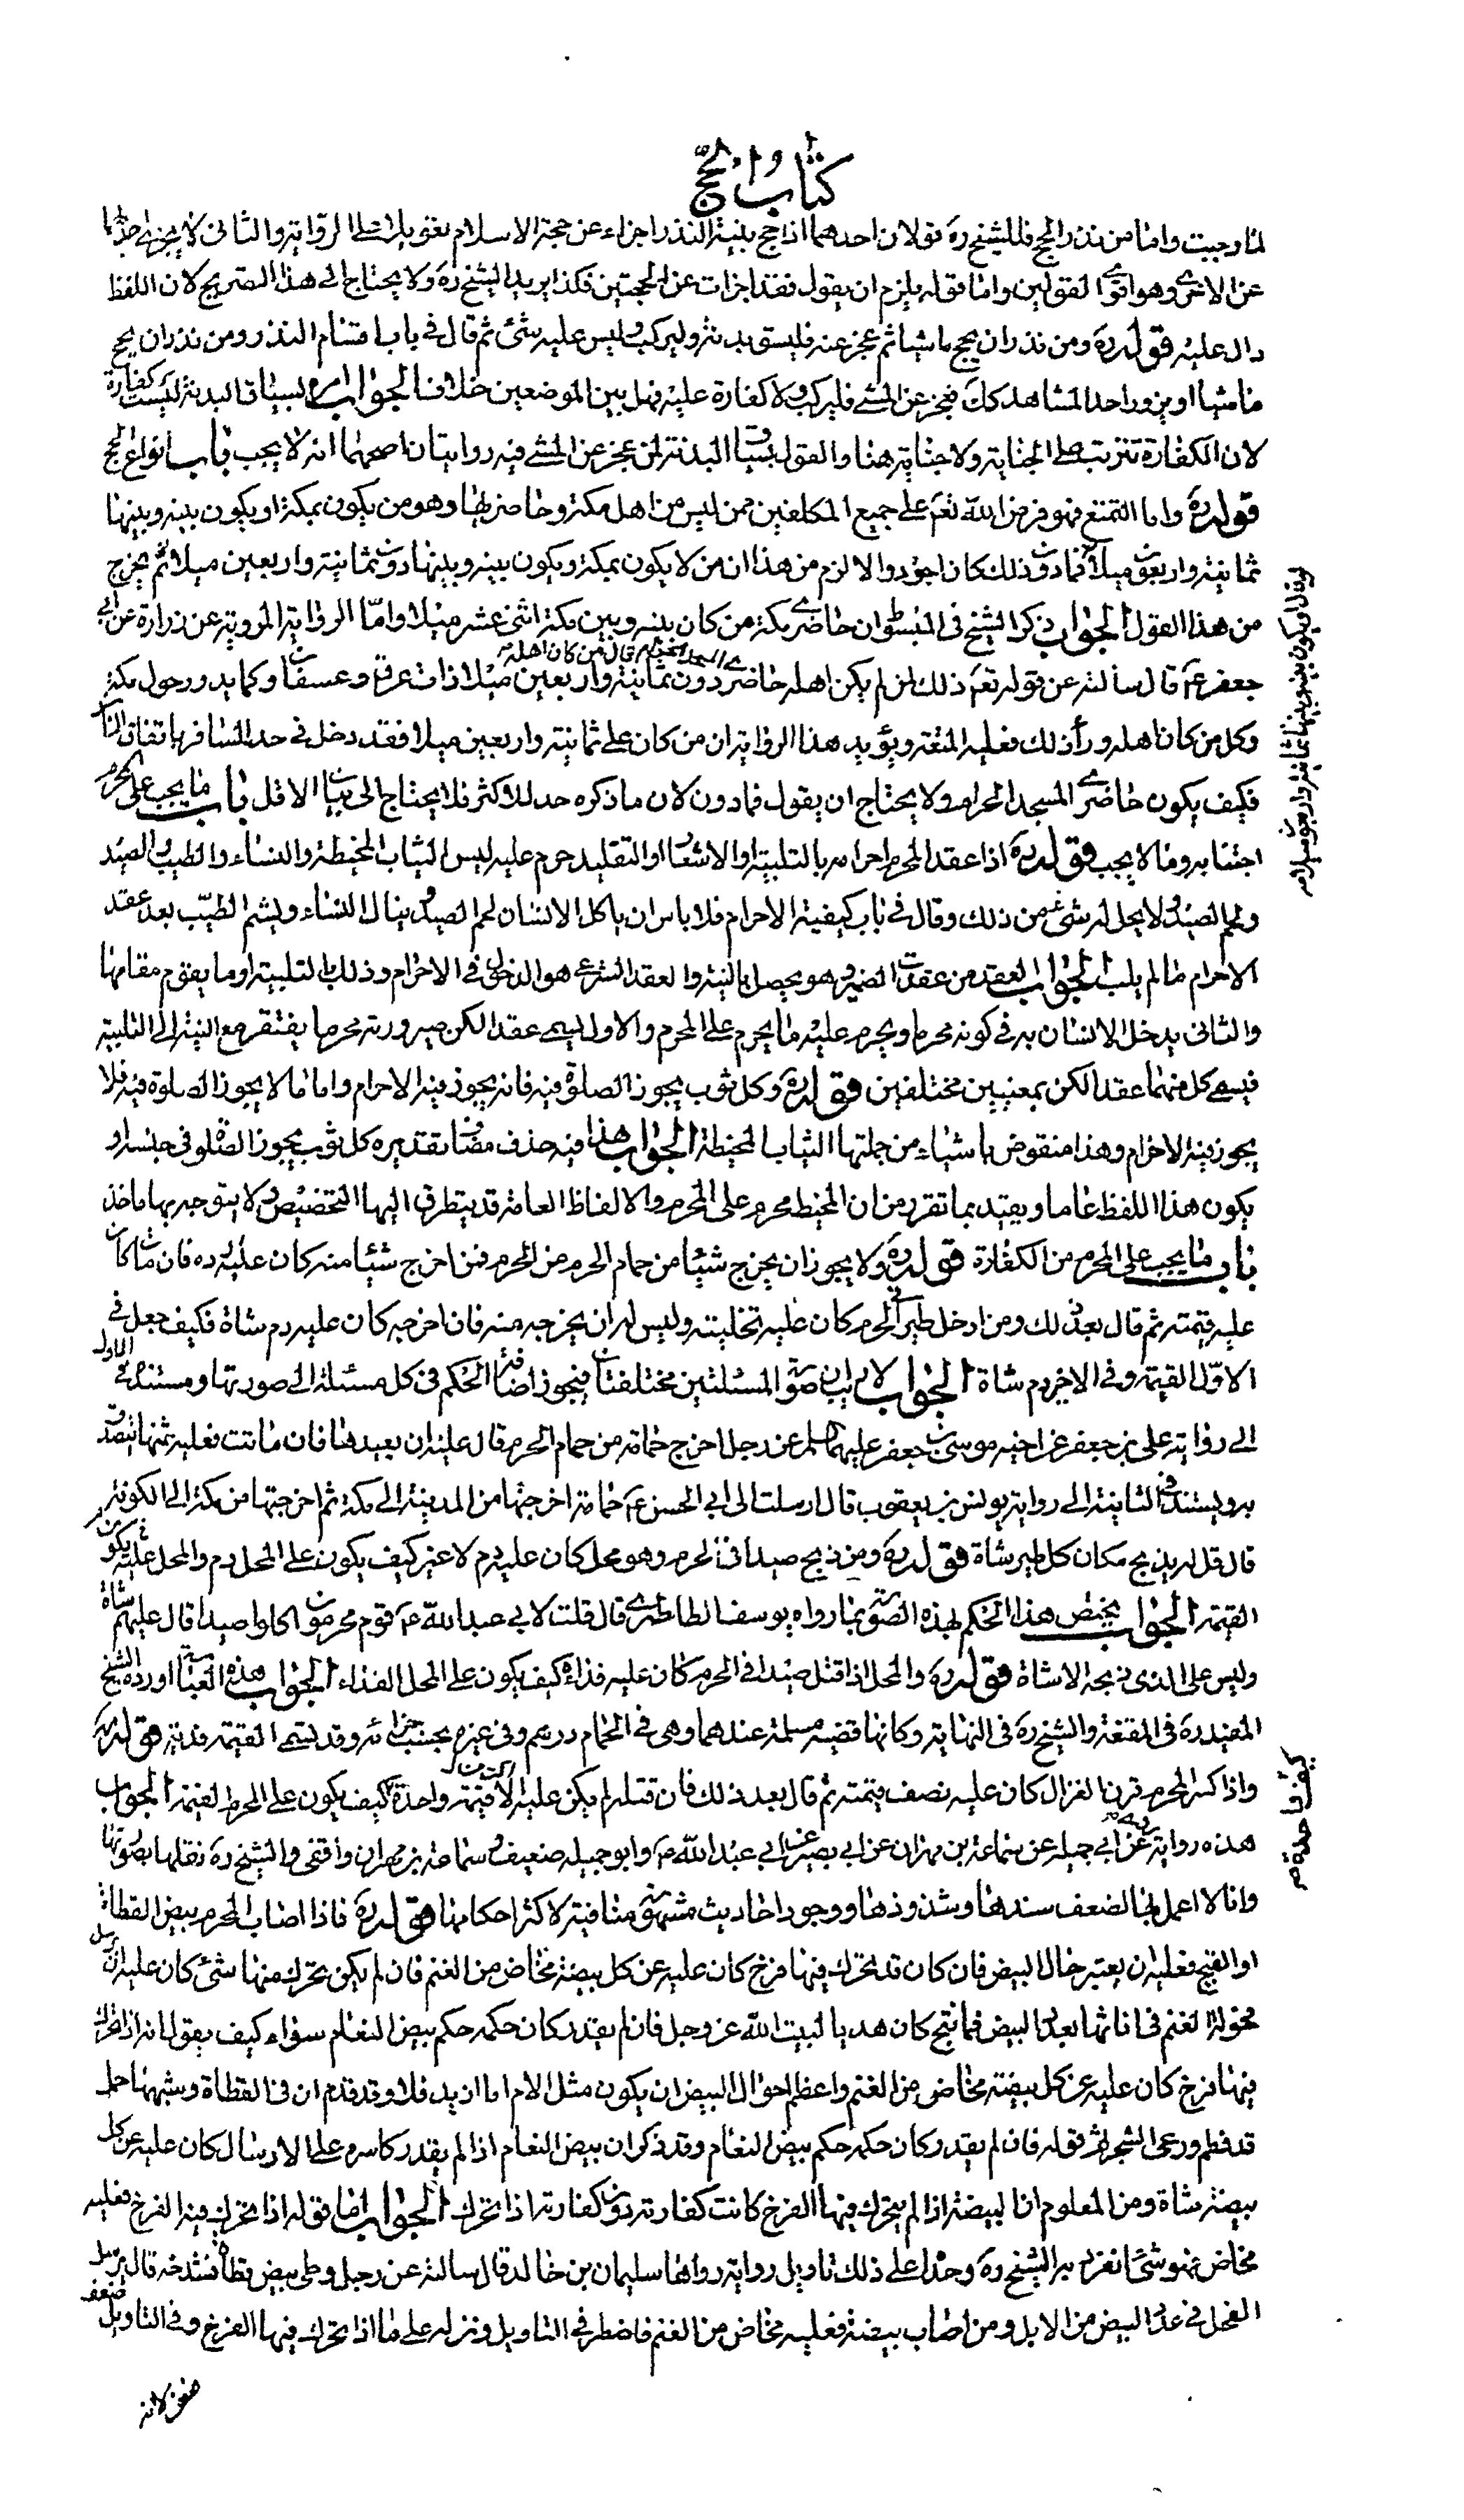 كتاب الحج
لما وجبت واما من نذر الحج فللشيخ ره قولان احدهما اذا حج بنية النذر اجزاء عن حجة الاسلام تعويلا على الرواية والثاني لا يجزي احدهما
عن الاخرى وهو اقوى القولين واما قوله يلزم ان يقول فقد اجزات عن الحجتين فكذا يريد الشيخ ره ولا يحتاج الى هذا التصريح لان اللفظ
دال عليه قوله ره ومن نذر ان يحج ماشيا ثم عجز عنه فليسق بدنة وليركب وليس عليه شئ ثم قال في باب اقسام النذر ومن نذر ان يحج
ماشيا او يزور احد المشاهد كك فعجز عن المشي فليركب ولا كفارة عليه فهل بين الموضعين خلاف الجواب امره بسياق البدنة ليست كفارة
لان الكفارة تترتب على الجناية ولا جناية هنا والقول بسياق البدنة لمن عجز عن المشي فيه روايتان اصحهما انه لا يجب باب انواع الحج
قوله ره واما التمتع فهو فرض الله تعم على جميع المكلفين ممن ليس من اهل مكة وحاضريها وهو من يكون بمكة او يكون بينه وبينها
ثمانية واربعون ميلا فما دون ذلك كان اجود والا لزم من هذا ان من لا يكون بمكة ويكون بينه وبينها دون ثمانية واربعين ميلا ثم يخرج
من هذا القول الجواب ذكر الشيخ في المبسوط ان حاضري مكة من كان بينه وبين مكة اثنى عشر ميلا واما الرواية المروية عن زرارة عن ابي
جعفر ع قال سالته عن قوله تعم ذلك لمن لم يكن اهله حاضري المسجد الحرام قال من كان اهله دون ثمانية واربعين ميلا ذات عرق وعسفان وكما يدور حول مكة
وكل من كان اهله وراء ذلك فعليه المتعة ويؤيد هذا الرواية ان من كان على ثمانية واربعين ميلا فقد دخل في حد المسافر باتفاق
فكيف يكون حاضري المسجد الحرام ولا يحتاج ان يقول فما دون لان ما ذكره حد للاكثر فلا يحتاج الى بيان الاقل باب ما يجب على المحرم
اجتنابه وما لا يجب قوله ره اذا عقد المحرم احرامه بالتلبية او الاشعار او التقليد حرم عليه لبس الثياب المخيطة والنساء والطيب والصيد
ولحم الصيد ولا يحل له شئ من ذلك وقال في باب كيفية الاحرام فلا باس ان ياكل الانسان لحم الصيد وينال النساء ويشم الطيب بعد عقد
الاحرام ما لم يلب الجواب العقد من عقدت الضمير وهو يحصل بالنية والعقد الشرعي هو الدخول في الاحرام وذلك بالتلبية او ما يقوم مقامها
والثاني يدخل الانسان به في كونه محرما ويحرم عليه ما يحرم على المحرم والاول يسمى عقدا لكن صيرورته محرما يفتقر مع النية الى التلبية
فيسمى كل منهما عقدا لكن بمعنيين مختلفين قوله ره وكل ثوب يجوز الصلوة فيه فانه يجوز فيه الاحرام واما ما لا يجوز الصلوة فيه فلا
يجوز فيه الاحرام وهذا منقوض باشياء من جملتها الثياب المخيطة الجواب هذا فيه حذف مضاف تقديره كل ثوب يجوز الصلوة في جنسه او
يكون هذا اللفظ عاما ويقيد بما تقرر من ان المخيط محرم على المحرم والالفاظ العامة قد يتطرق اليها التخصيص ولا يتوجه بها ماخذ
باب ما يجب على المحرم من الكفارة قوله ره ولا يجوز ان يخرج شيئا من حمام الحرم من الحرم فمن اخرج شيئا منه كان عليه رده فان مات كان
عليه قيمته ثم قال بعد ذلك ومن ادخل طيرا الحرم كان عليه تخليته وليس له ان يخرجه منه فان اخرجه كان عليه دم شاة فكيف جعل في
الاول القيمة وفي الاخير دم شاة الجواب لا ريب ان صورتي المسئلتين مختلفتان فيجوز اضافة الحكم في كل مسئلة الى صورتها ومستنده في الاولى
الى رواية على بن جعفر عن اخيه موسى بن جعفر عليهما السلم عن رجل اخرج حمامة من حمام الحرم قال عليه ان يعيدها فان ماتت فعليه ثمنها يتصدق
به ويستند في الثانية الى رواية يونس بن يعقوب قال ارسلت الى ابي الحسن ع حمامة اخرجتها من المدينة الى مكة ثم اخرجتها من مكة الى الكوفة
قال قل له يذبح مكان كل طير شاة قوله ره ومن ذبح صيدا في الحرم وهو محل كان عليه دم لا غير كيف يكون على المحل دم والمحل عليه يكون
القيمة الجواب يختص هذا الحكم لهذه الصورة بما رواه يوسف الطاطري قال قلت لابي عبد الله ع قوم محرمون اكلوا صيدا قال عليهم شاة
وليس على الذي ذبحه الا شاة قوله ره والمحل اذا قتل صيدا في الحرم كان عليه فداؤه كيف يكون على المحل الفداء الجواب هذه العبارة اوردها الشيخ
المفيد ره في المقنعة والشيخ ره في النهاية وكانها قضية مسلمة عندهما وهي في الحمام درهم وفي غيره بحسب جزائه وقد تسمى القيمة فدية قوله ره
واذا كسر المحرم قرن الغزال كان عليه نصف قيمته ثم قال بعد ذلك فان قتله لم يكن عليه اكثر من الا قيمة واحدة كيف يكون على المحرم القيمة الجواب
هذه رواية عن ابي جميلة عن سماعة بن مهران عن ابي بصير عن ابي عبد الله ع وابو جميلة ضعيف وسماعة بن مهران واقفي والشيخ ره نقلها بصورتها
وانا لا اعمل بها لضعف سندها وشذوذها ووجود احاديث مشهورة منافية لاكثر احكامها قوله ره فاذا اصاب المحرم بيض القطاة
او القبج فعليه ان يعتبر حال البيض فان كان قد تحرك فيها فرخ كان عليه عن كل بيضة مخاض من الغنم فان لم يكن تحرك منها شئ كان عليه ان يرسل
فحولة الغنم في اناثها بعدد البيض فما نتج كان هديا لبيت الله عز وجل فان لم يقدر كان حكمه حكم بيض النعام سواء كيف يقول انه اذا تحرك
فيها فرخ كان عليه عن كل بيضة مخاض من الغنم واعظم احوال البيض ان يكون مثل الام اما ازيد فلا وقد قدم ان في القطاة وشبهها حمل
قد فطم ورعى الشجر ثم قوله فان لم يقدر كان حكمه حكم بيض النعام وقد ذكر ان بيض النعام اذا لم يقدر كاسره على الارسال كان عليه عن كل
بيضة شاة ومن المعلوم ان البيضة اذا لم يتحرك فيها الفرخ كانت كفارته دون كفارته اذا تحرك الجواب اما قوله اذا تحرك فيه الفرخ فعليه
مخاض فهو شئ انفرد به الشيخ ره وحمل على ذلك تاويل رواية رواها سليمان بن خالد قال سالته عن رجل وطى بيض قطاة فشدخه قال يرسل
الفحل في عدد البيض من الابل ومن اصاب بيضة فعليه مخاض من الغنم فاضطر في التاويل ونزله على ما اذا تحرك فيها الفرخ وفي التاويل ضعف
لو قال او يكون بينه وبينها ثمانية واربعون ميلا